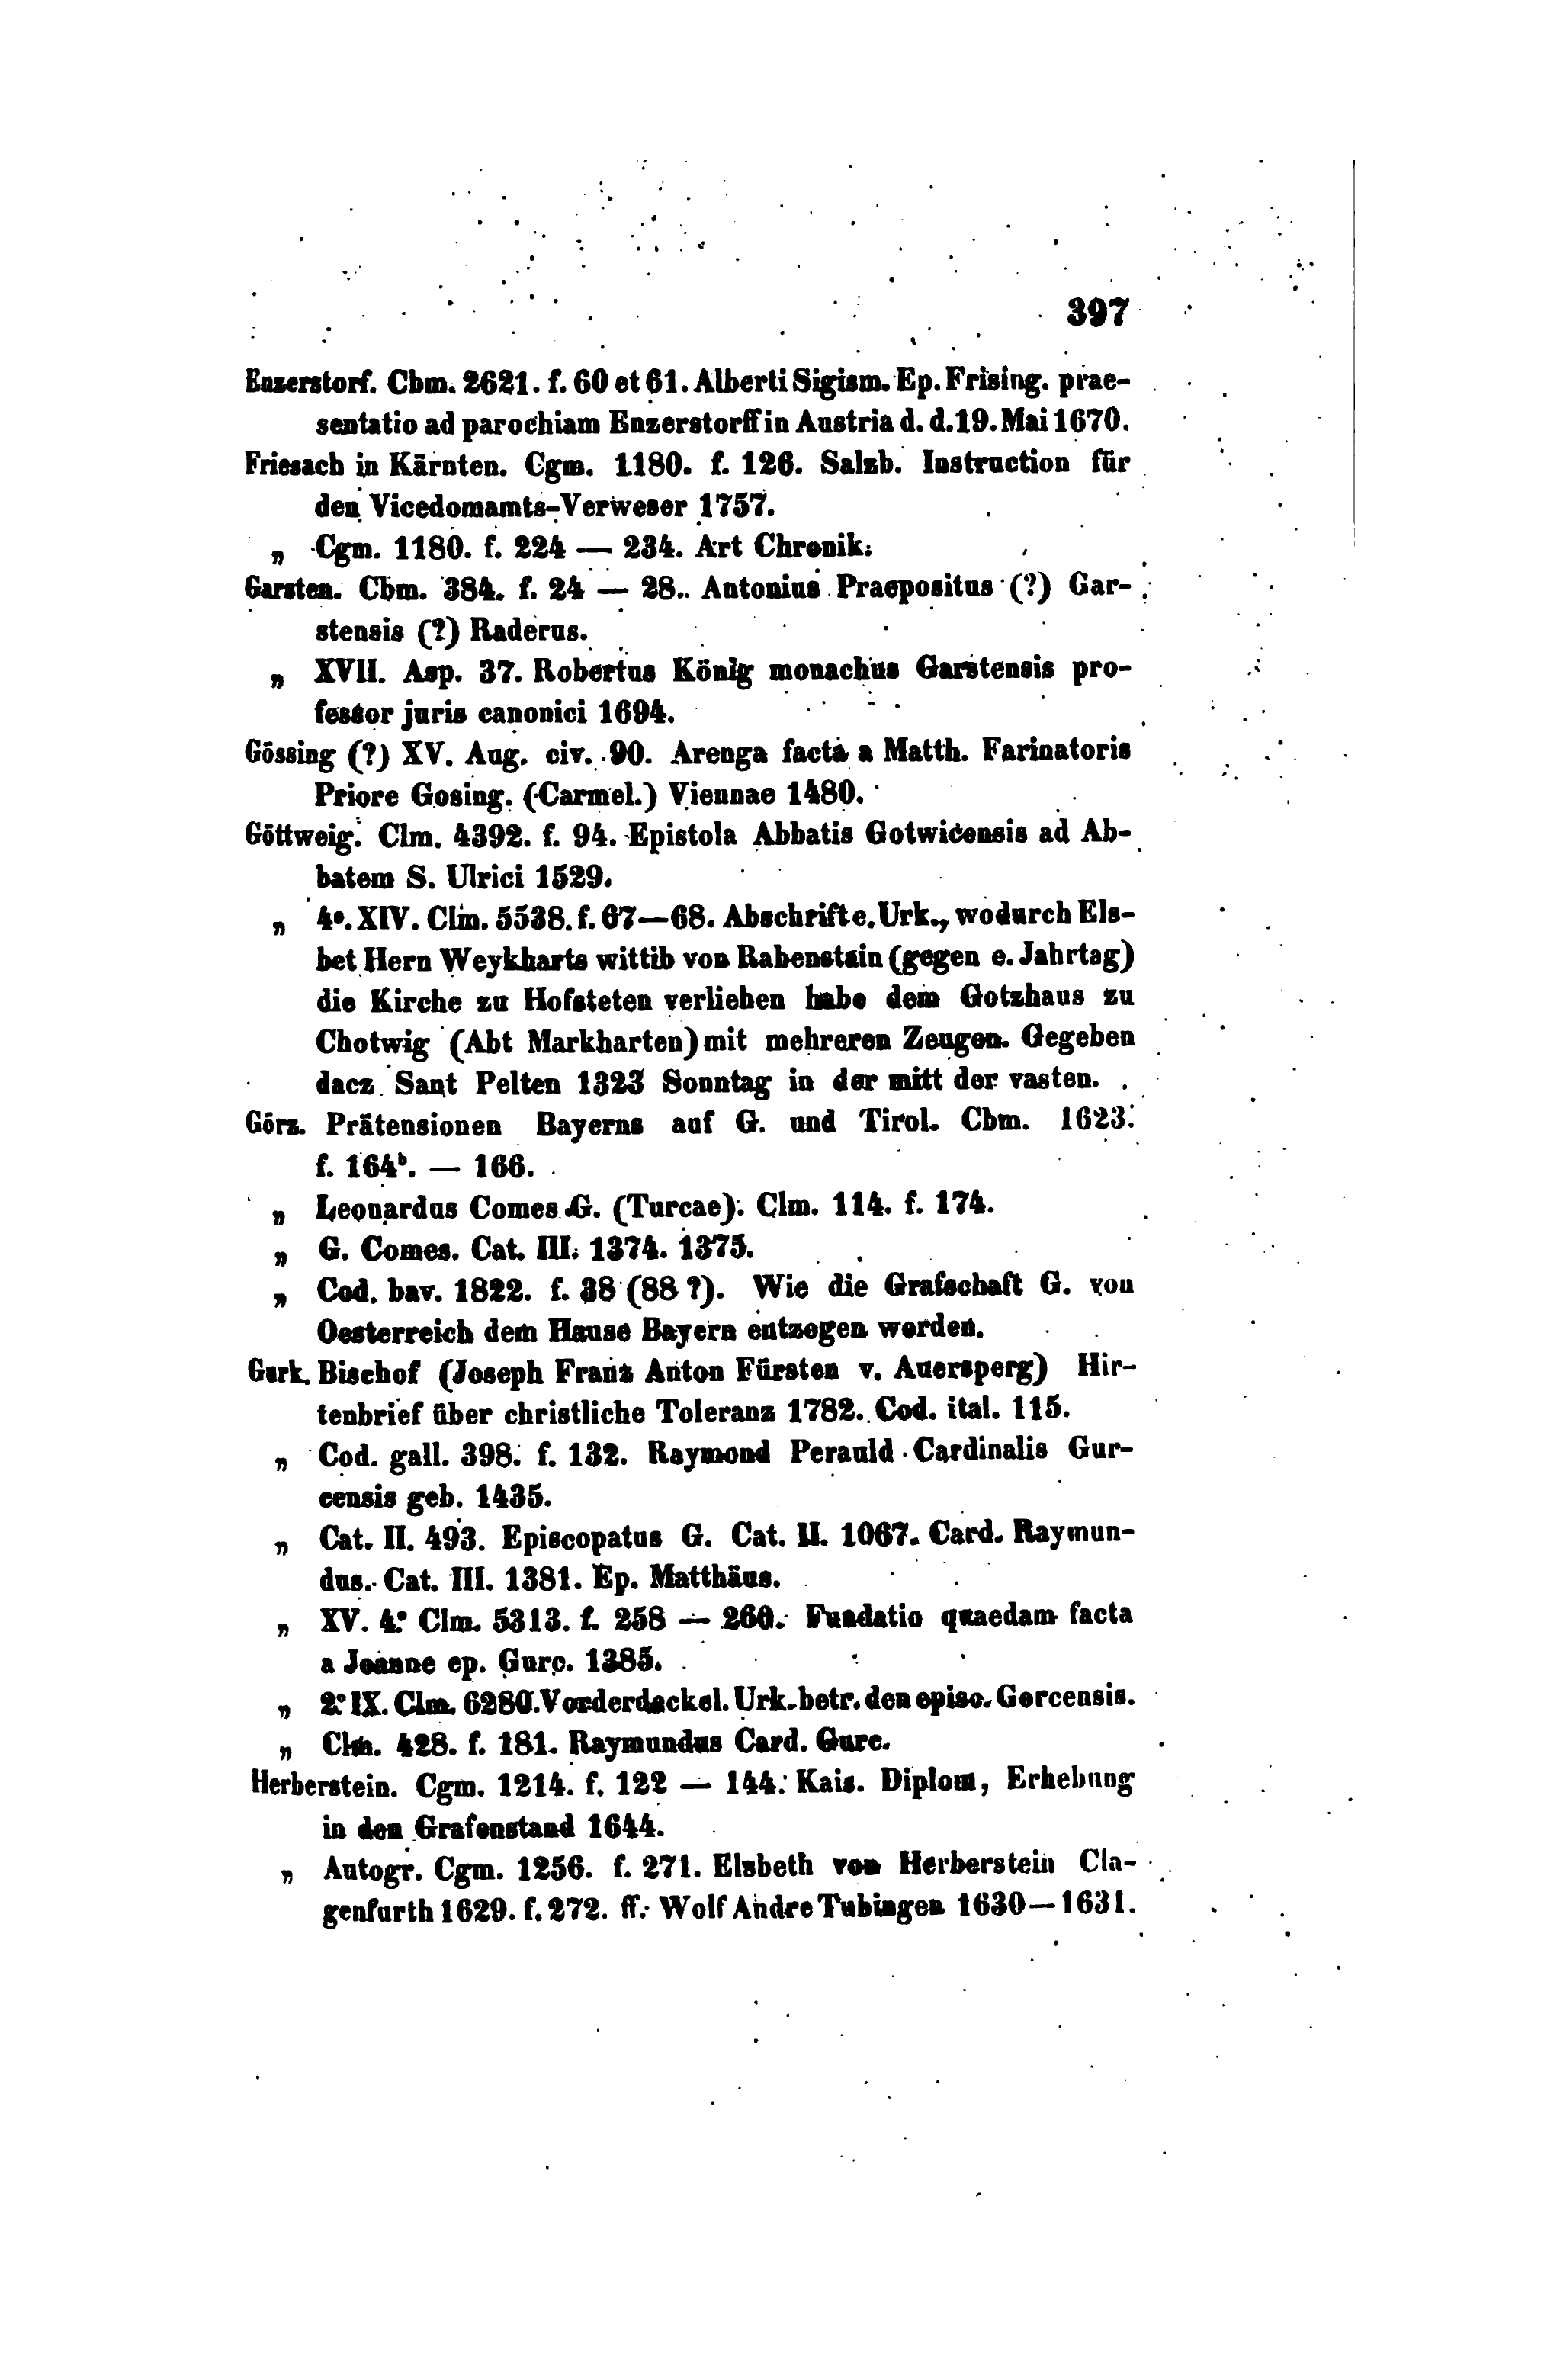 397
Enzerstorf. Cbm. 2621. f. 60 et 61. Alberti Sigism. Ep. Frising. prae-
sentatio ad parochiam Enzerstorff in Austria d. d. 19. Mai 1670.
Friesach in Kärnten. Cgm. 1180. f. 126. Salzb. Instruction für
den Vicedomamts-Verweser 1757.
„ Cgm. 1180. f. 224 — 234. Art Chronik.
Garsten. Cbm. 384. f. 24 — 28. Antonius Praepositus (?) Gar-
stensis (?) Raderus.
„ XVII. Asp. 37. Robertus König monachus Garstensis pro-
fessor juris canonici 1694.
Gössing (?) XV. Aug. civ. 90. Arenga facta a Matth. Farinatoris
Priore Gosing. (Carmel.) Viennae 1480.
Göttweig. Clm. 4392. f. 94. Epistola Abbatis Gotwicensis ad Ab-
batem S. Ulrici 1529.
„ 4°. XIV. Clm. 5538. f. 67—68. Abschrift e. Urk., wodurch Els-
bet Hern Weykharts wittib von Rabenstain (gegen e. Jahrtag)
die Kirche zu Hofsteten verliehen habe dem Gotzhaus zu
Chotwig (Abt Markharten) mit mehreren Zeugen. Gegeben
dacz Sant Pelten 1323 Sonntag in der mitt der vasten.
Görz. Prätensionen Bayerns auf G. und Tirol. Cbm. 1623.
f. 164ᵇ. — 166.
„ Leonardus Comes G. (Turcae). Clm. 114. f. 174.
„ G. Comes. Cat. III. 1374. 1375.
„ Cod. bav. 1822. f. 38 (88 ?). Wie die Grafschaft G. von
Oesterreich dem Hause Bayern entzogen worden.
Gurk. Bischof (Joseph Franz Anton Fürsten v. Auersperg) Hir-
tenbrief über christliche Toleranz 1782. Cod. ital. 115.
„ Cod. gall. 398. f. 132. Raymond Perauld Cardinalis Gur-
censis geb. 1435.
„ Cat. II. 493. Episcopatus G. Cat. II. 1067. Card. Raymun-
dus. Cat. III. 1381. Ep. Matthäus.
„ XV. 4.° Clm. 5313. f. 258 — 260. Fundatio quaedam facta
a Joanne ep. Gurc. 1385.
„ 2.° IX. Clm. 6280. Vorderdeckel. Urk. betr. den episc. Gorcensis.
„ Clm. 428. f. 181. Raymundus Card. Gurc.
Herberstein. Cgm. 1214. f. 122 — 144. Kais. Diplom, Erhebung
in den Grafenstand 1644.
„ Autogr. Cgm. 1256. f. 271. Elsbeth von Herberstein Cla-
genfurth 1629. f. 272. ff. Wolf Andre Tubingen 1630—1631.